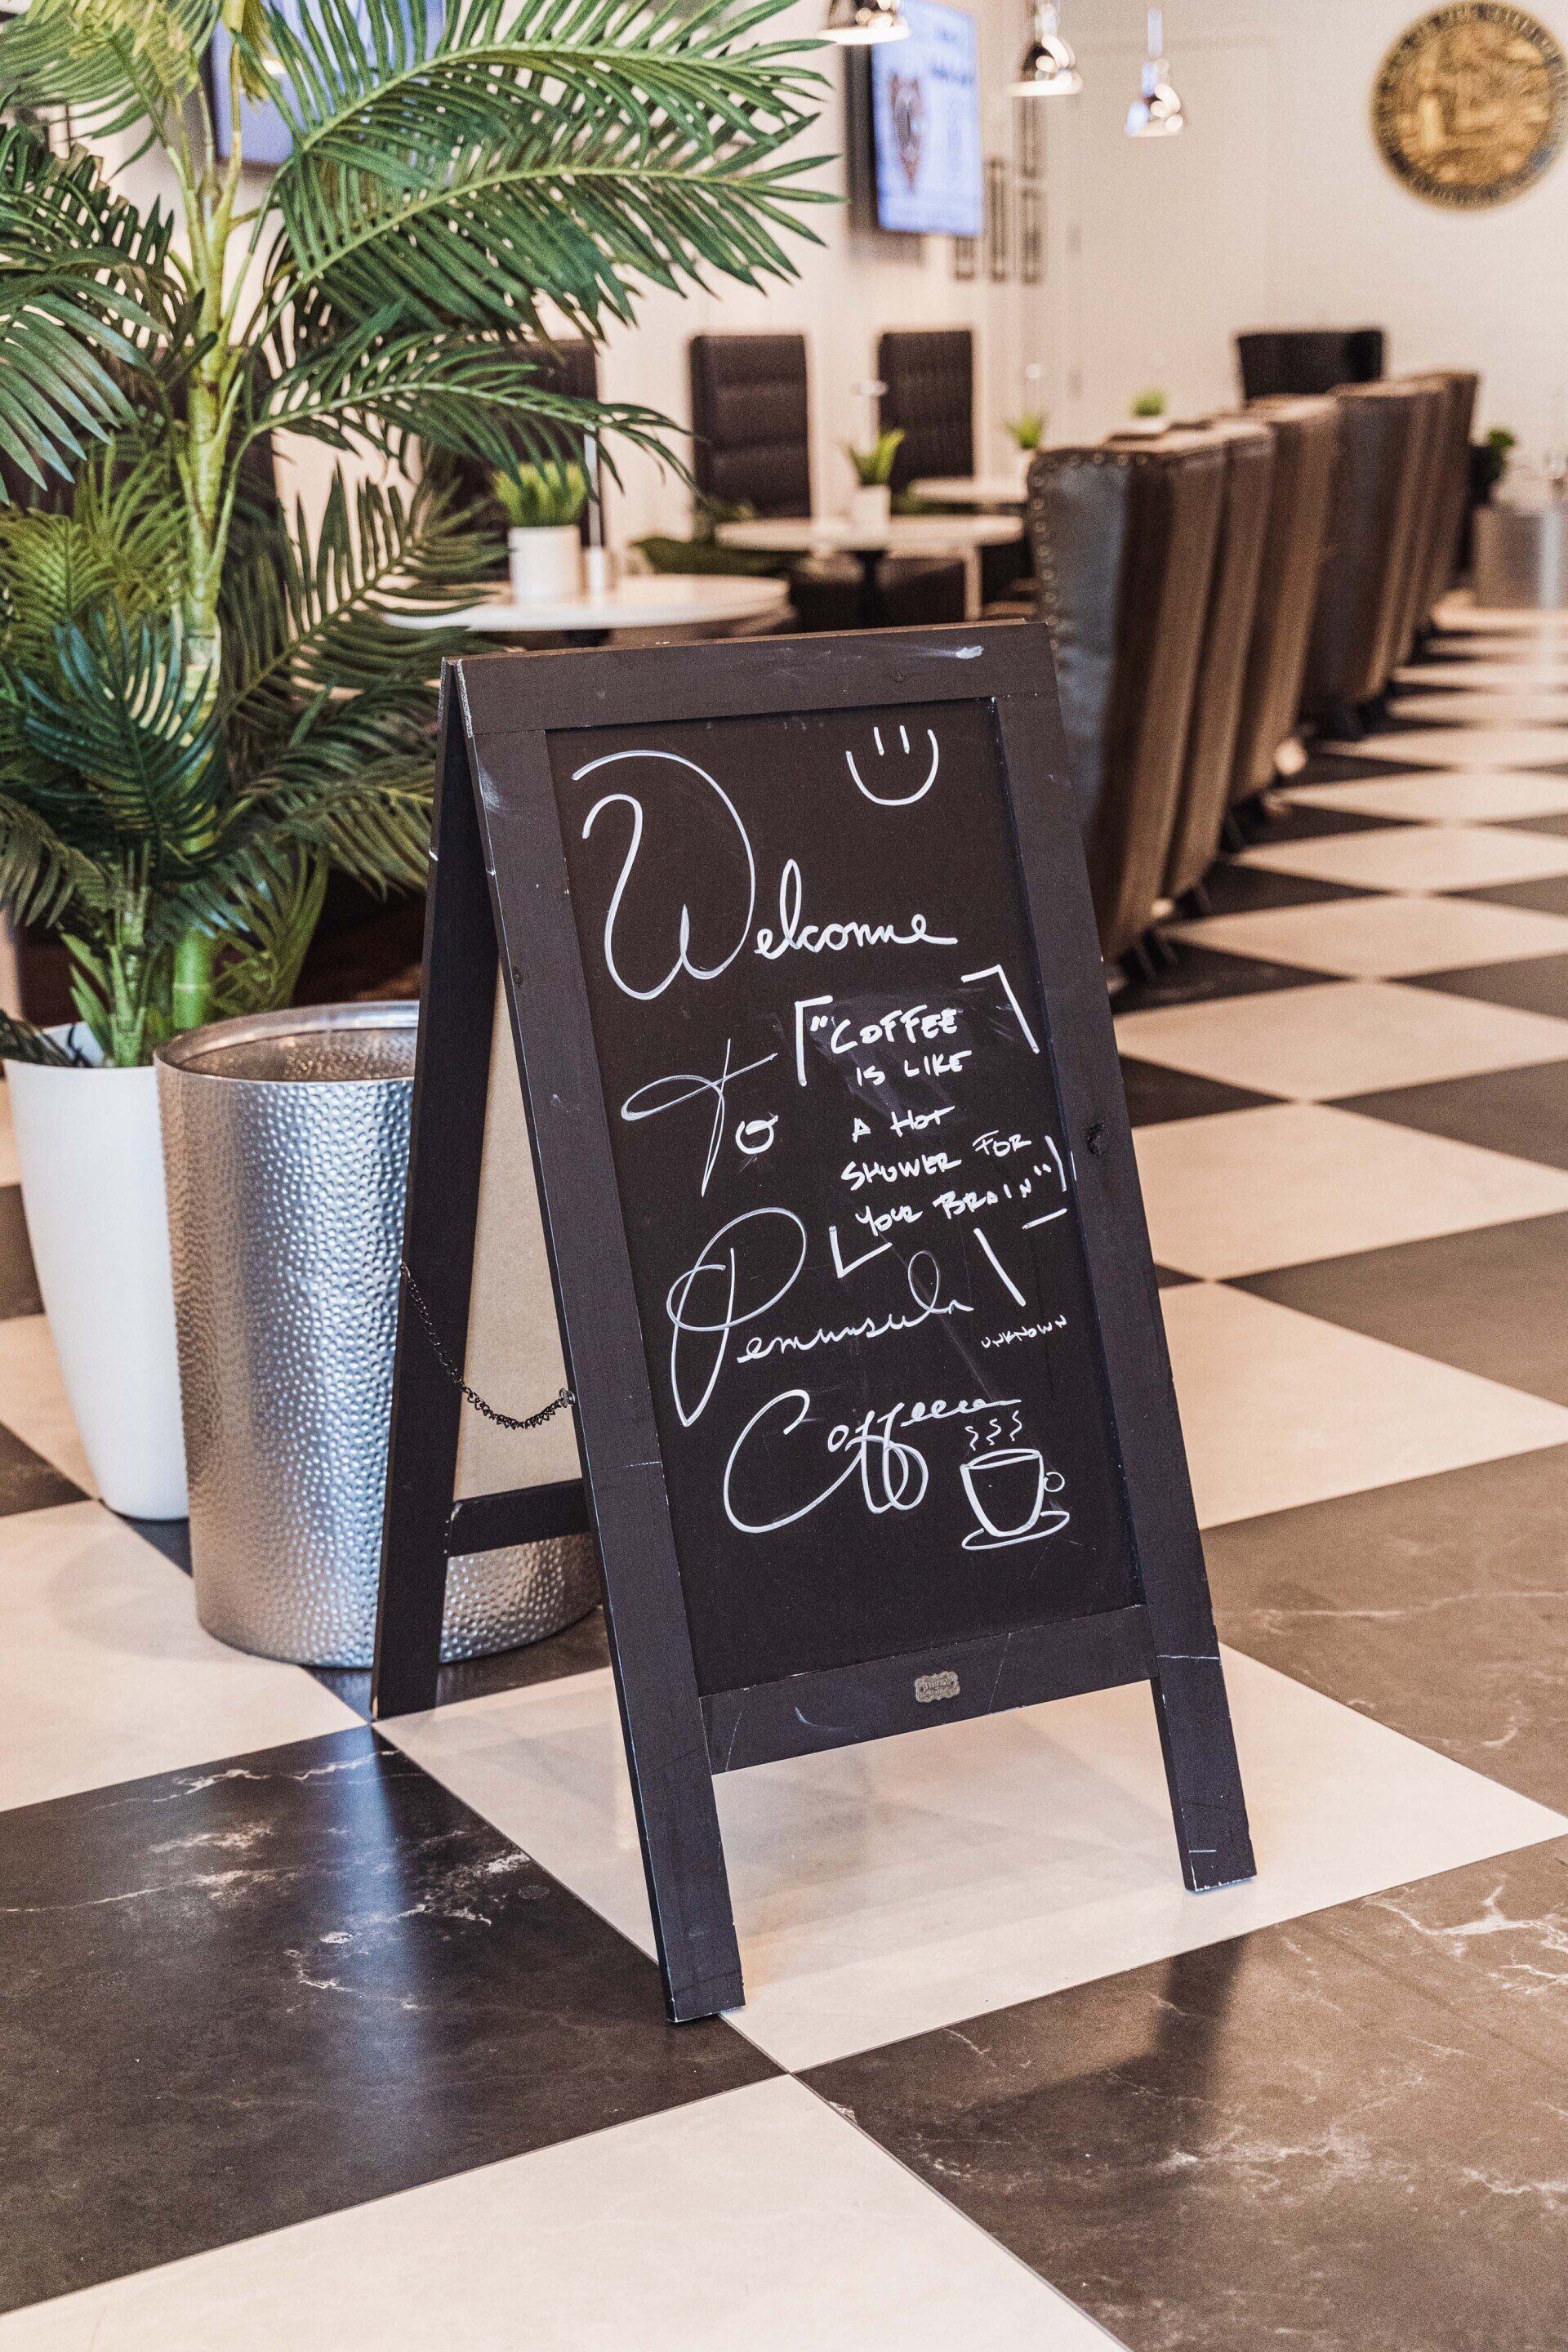 Welcome
To
"COFFEE
IS LIKE
A HOT
SHOWER FOR
YOUR BRAIN"
UNKNOWN
Peninsula
Coffeeee